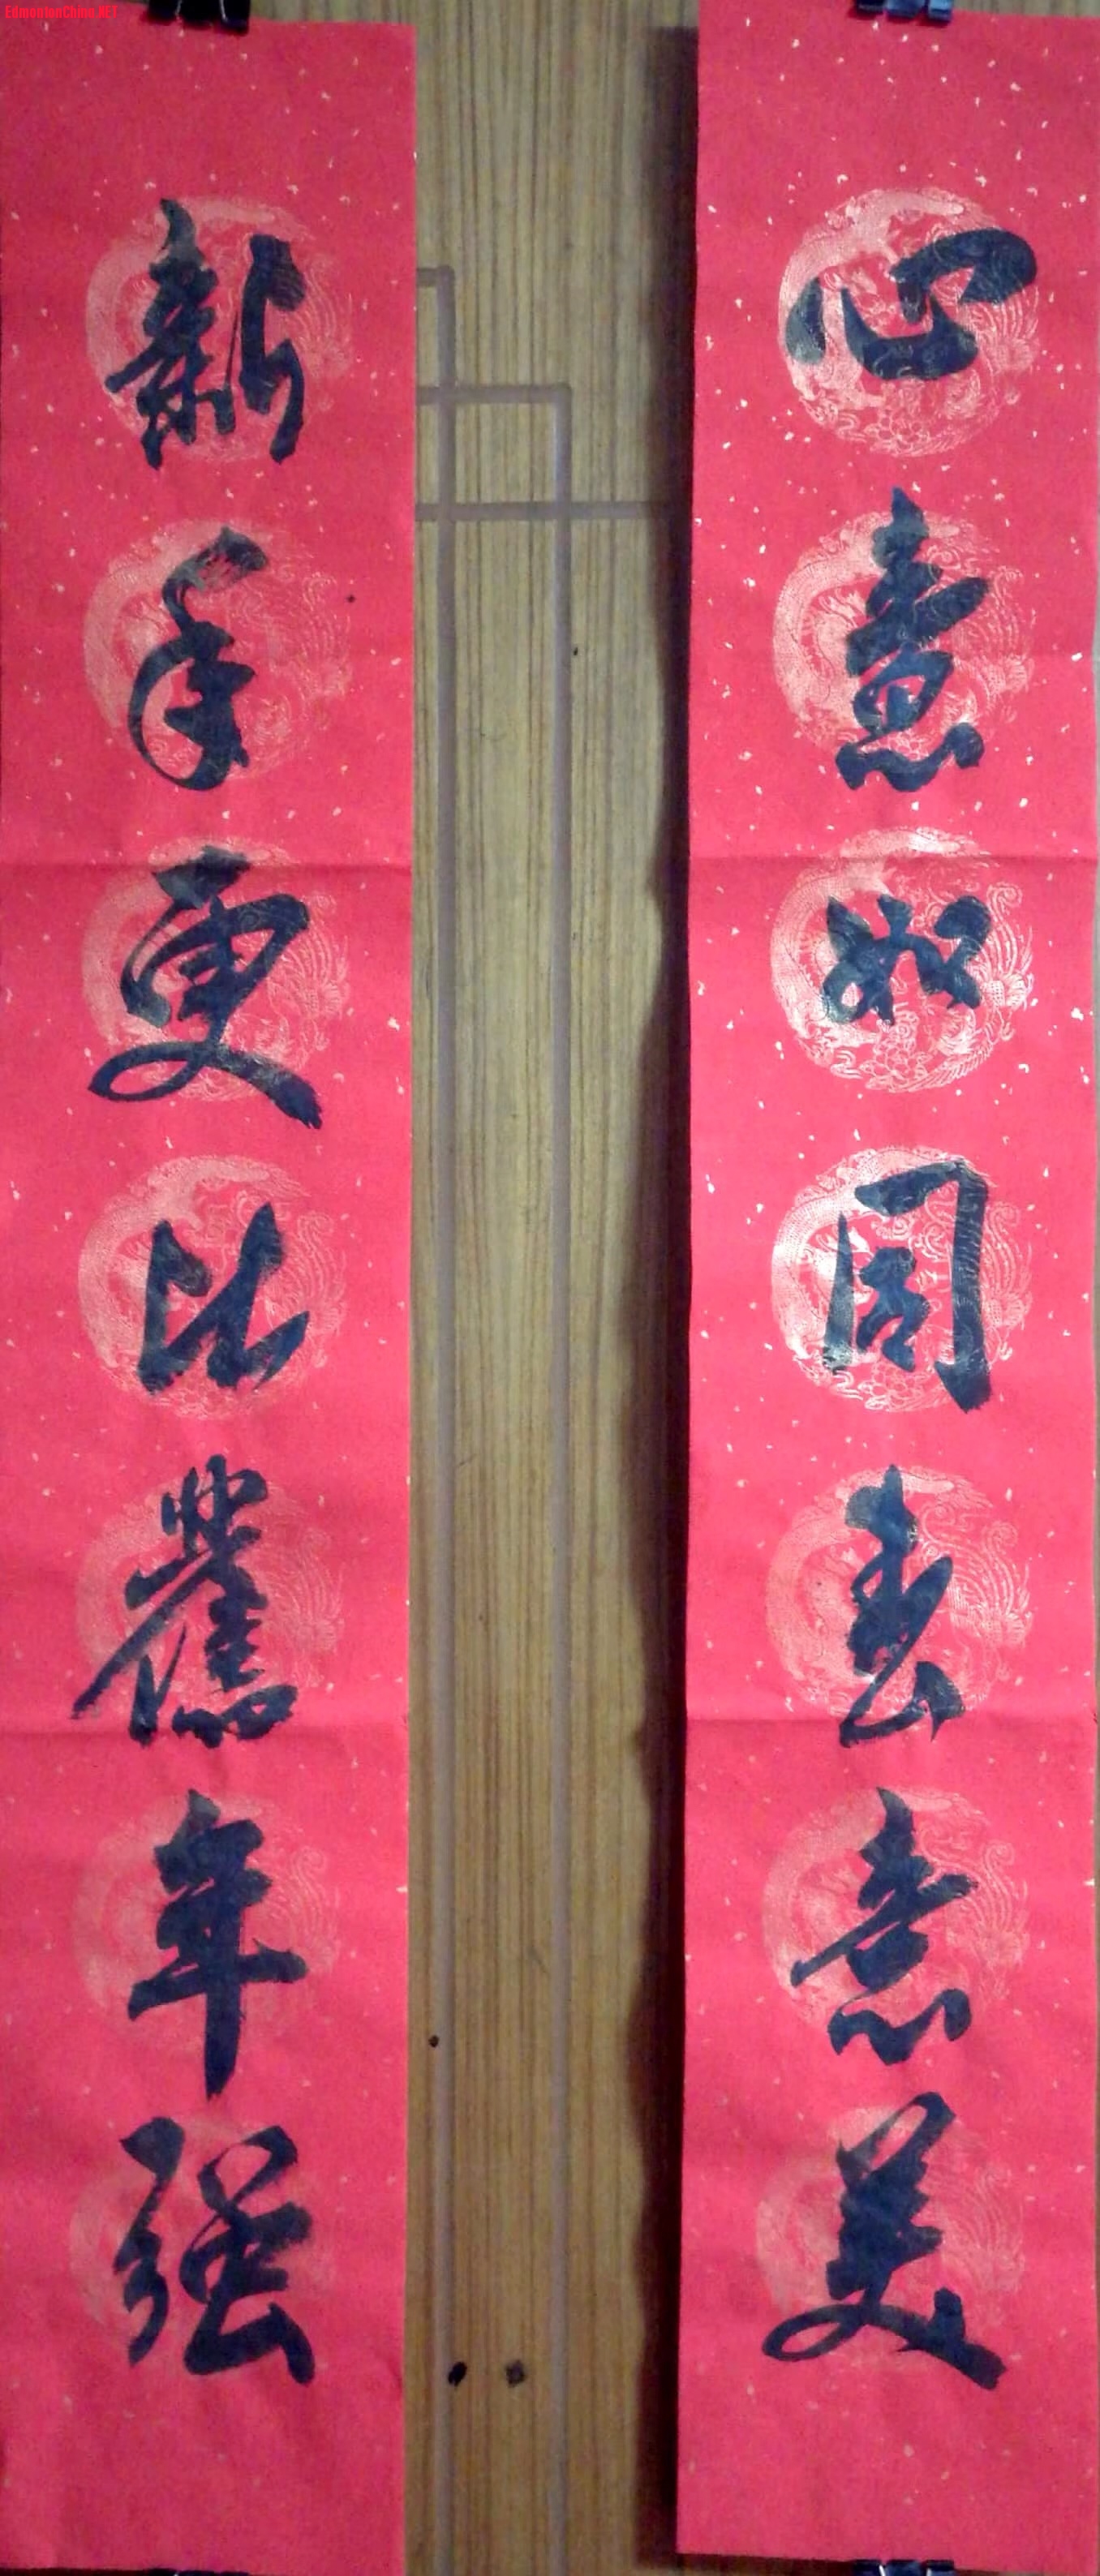 EdmontonChina.NET
心意如同春意美
新年更比舊年强